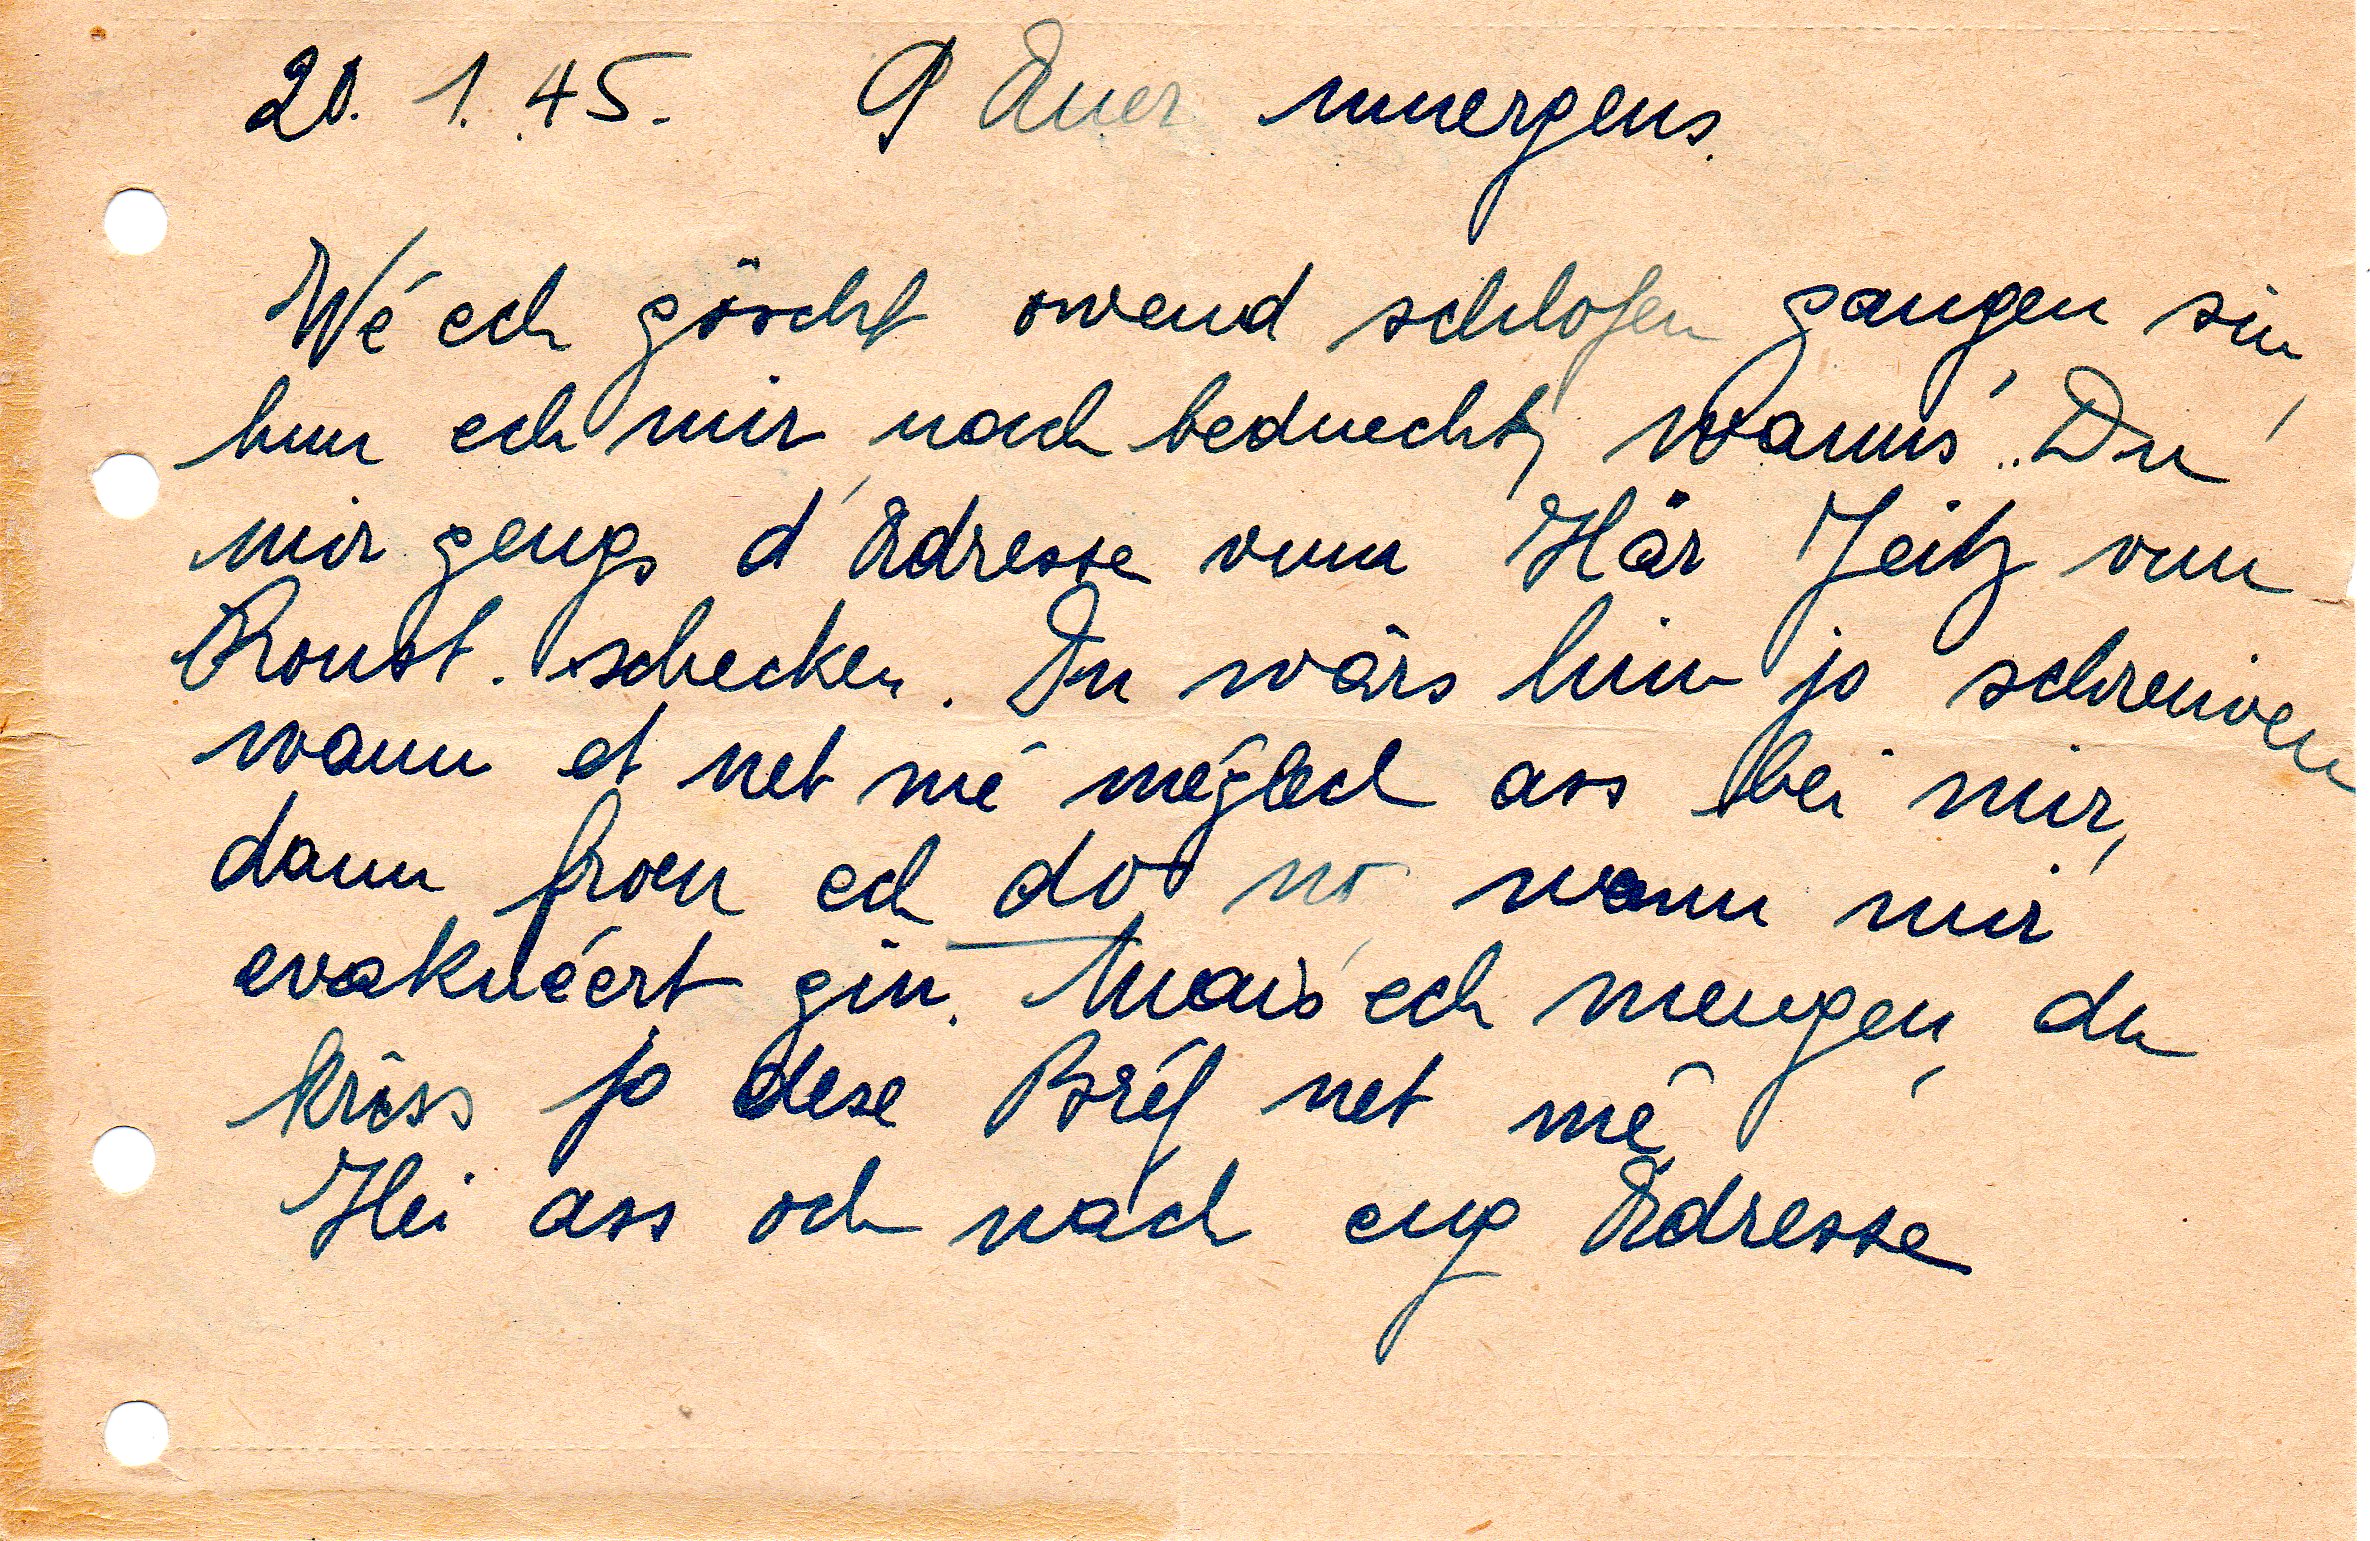 20. 1. 45. 9 Auer muergens.
Wé ech göscht owend schlofen gangen sin,
hun ech mir noch beduecht, wanns Du
mir gengs d'Adresse vum Här Jeitz vun
Konst. schecken. Du wärs him jo schreiwen
wann et net mé méglech ass bei mir,
dann froen ech do no wann mir
evakuéert gin. Mais ech mengen, du
kriss jo dese Bréf net mé
Hei ass och nach eng Adresse